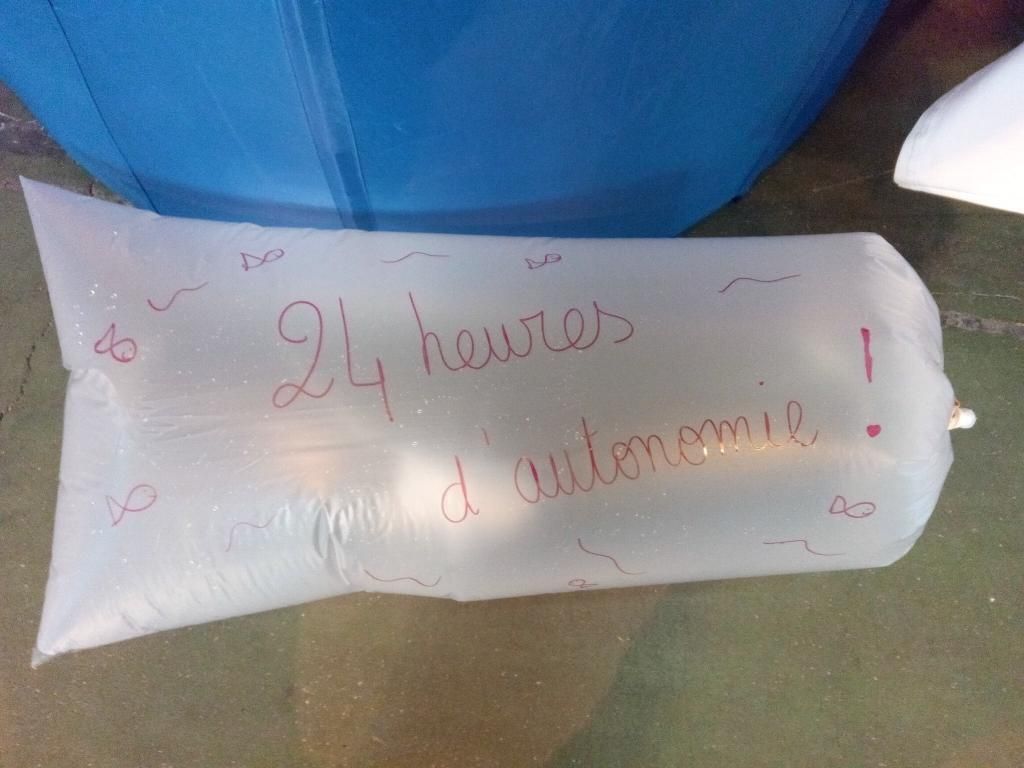 24 heures
d'autonomie !